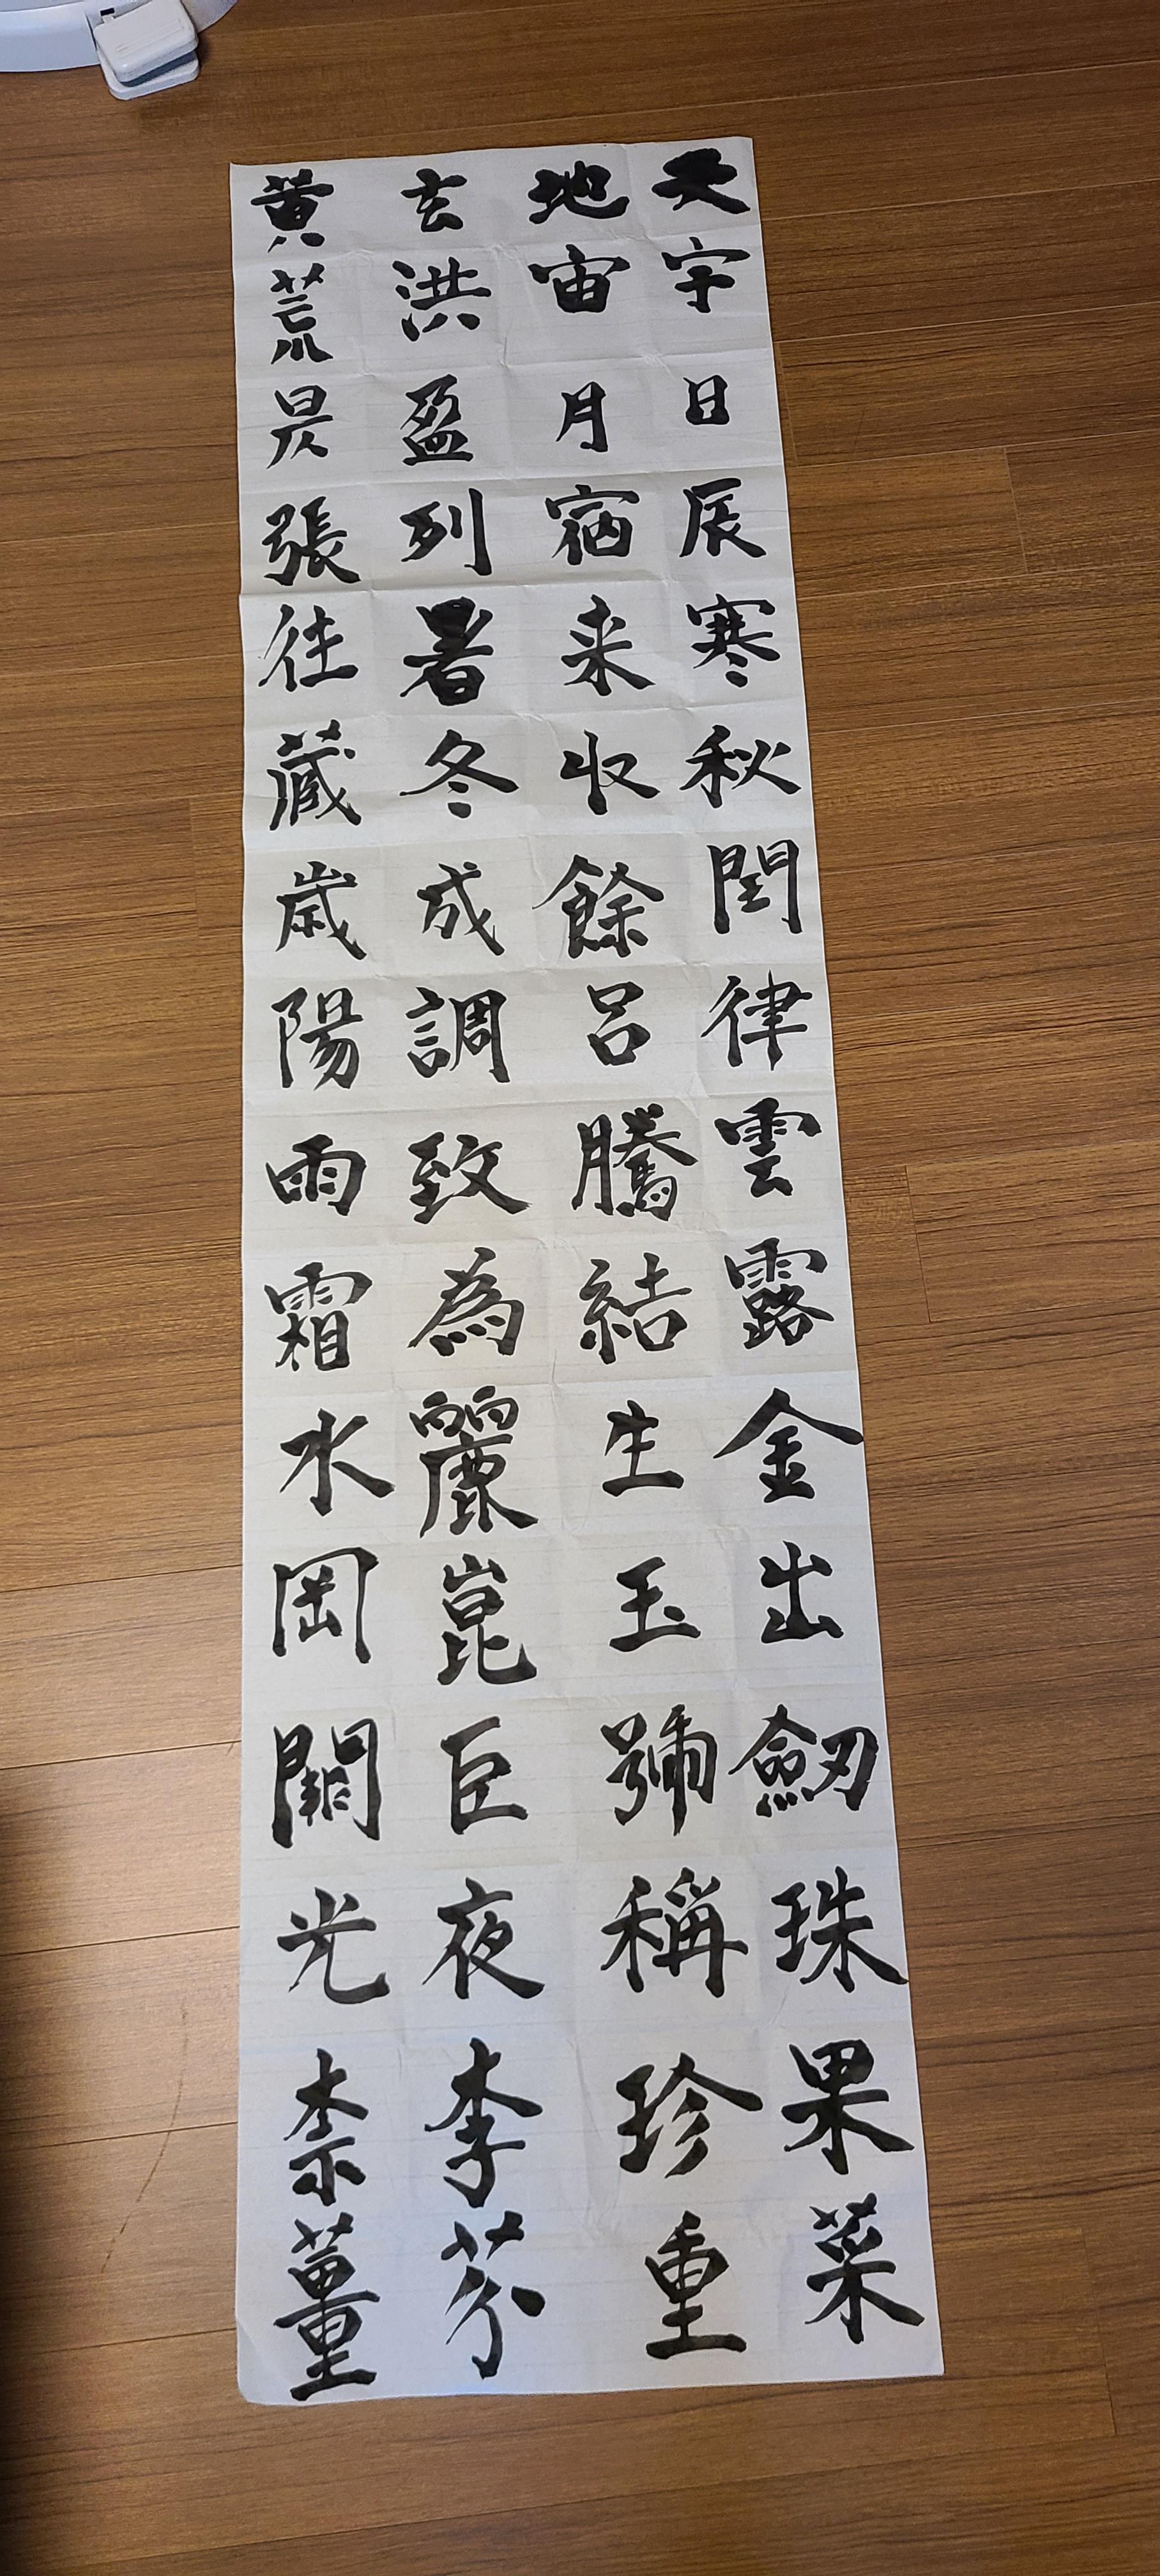 天地玄黄
宇宙洪荒
日月盈昃
辰宿列張
寒来暑往
秋収冬蔵
閏餘成歳
律呂調陽
雲騰致雨
露結為霜
金生麗水
出玉崑岡
劒號巨闕
珠稱夜光
果珍李柰
菜重芥薑